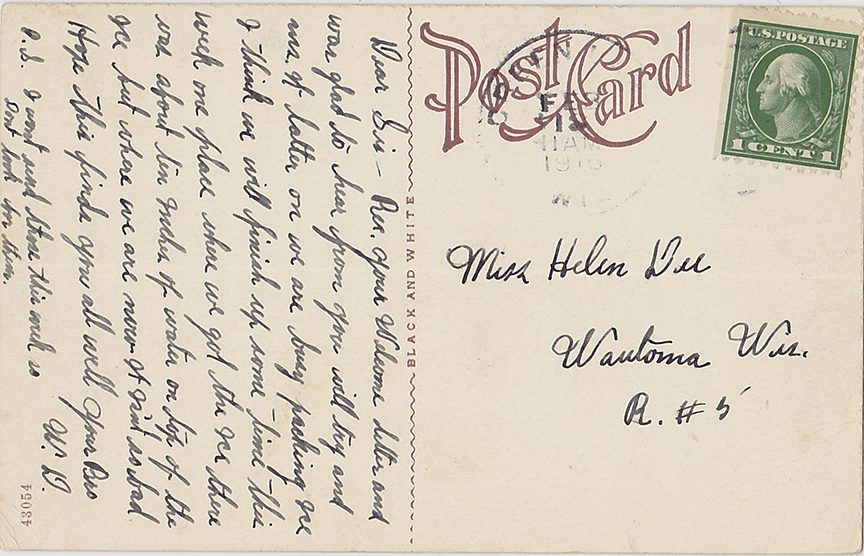 Dear Sis – Rec. your Welcome letter and
was glad to hear from you will try and
ans it latter on we are busy packing ice
I think we will finish up some time this
week one place where we got the ice there
was about ten inches of water on top of the
ice but where we are now it aint as bad
Hope this finds you all well Your Bro
W. D.
P.S. I wont send those this week so
dont look for them.
43054
BLACK AND WHITE
Post Card
FEB
11AM
WIS
U.S. POSTAGE
1 CENT 1
Miss Helen Dee
Wautoma Wis.
R. # 5